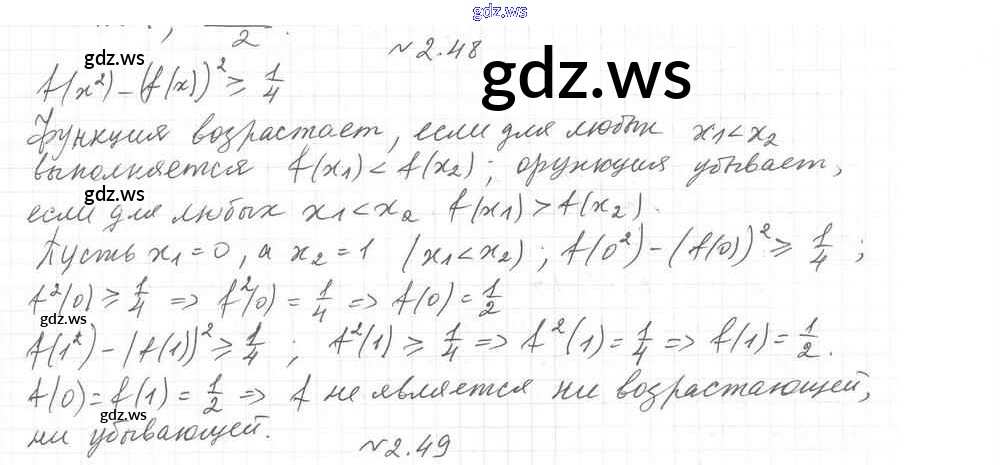 gdz.ws
2
№2.48
gdz.ws
gdz.ws
f(x²) - (f(x))² ≥ 1/4
Функция возрастает, если для любых x₁ < x₂
выполняется f(x₁) < f(x₂); функция убывает,
gdz.ws
если для любых x₁ < x₂ f(x₁) > f(x₂).
Пусть x₁ = 0, а x₂ = 1 (x₁ < x₂); f(0²) - (f(0))² ≥ 1/4;
f²(0) ≥ 1/4 => f²(0) = 1/4 => f(0) = 1/2
gdz.ws
f(1²) - (f(1))² ≥ 1/4; f²(1) ≥ 1/4 => f²(1) = 1/4 => f(1) = 1/2.
f(0) = f(1) = 1/2 => f не является ни возрастающей,
gdz.ws
ни убывающей.
№2.49
gdz.ws